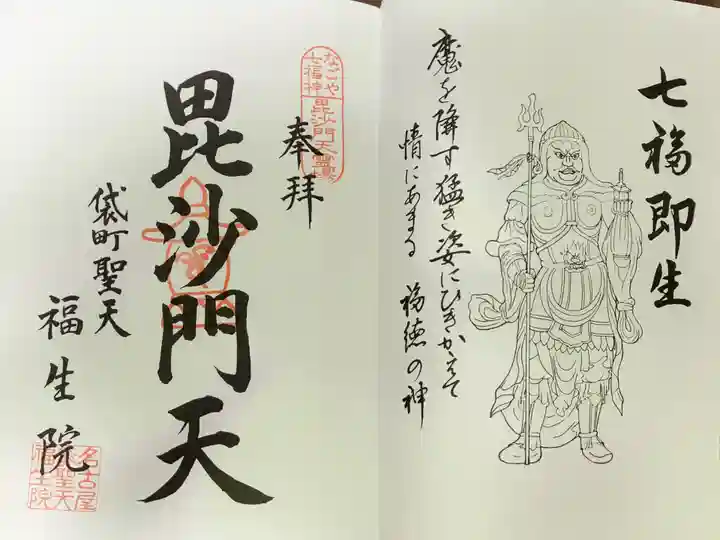 七福即生
魔を降す猛き姿にひきかえて
情にあまる 福徳の神
奉拝
なごや
七福神
毘沙門天霊場
毘沙門天
袋町聖天
福生院
名古屋
聖天
福生院